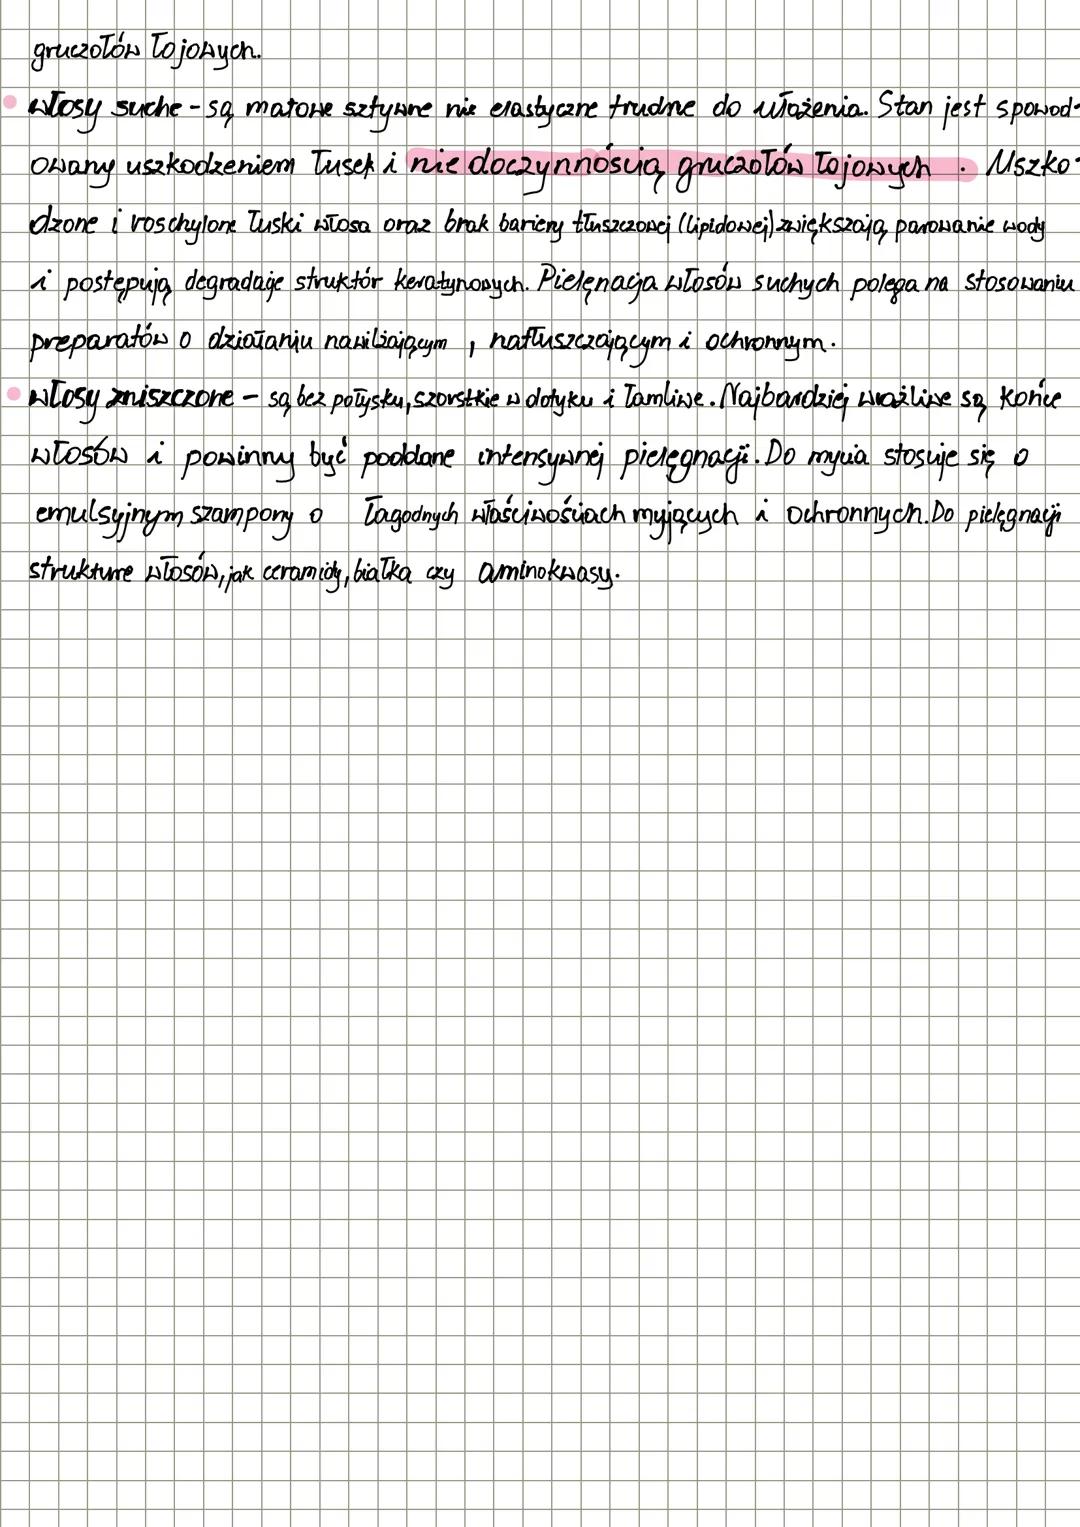 gruczołów łojowych.
włosy suche - są matowe sztywne nie elastyczne trudne do ułożenia. Stan jest spowod-
owany uszkodzeniem łusek i nie doczynnością gruczołów łojowych. Uszko-
dzone i roschylone łuski włosa oraz brak bariery tłuszczowej (lipidowej) zwiększają parowanie wody
i postępują degradaje struktór keratynowych. Pielęnacja włosów suchych polega na stosowaniu
preparatów o działaniu nawilżającym, natłuszczającym i ochronnym.
włosy zniszczone - są bez połysku, szorstkie w dotyku i łamliwe. Najbardziej wrażliwe są końce
włosów i powinny być poddane intensywnej pielęgnacji. Do mycia stosuje się o
emulsyjnym szampony o łagodnych właściwościach myjących i ochronnych. Do pielęgnacji
strukture włosów, jak ceramidy, białka czy aminokwasy.